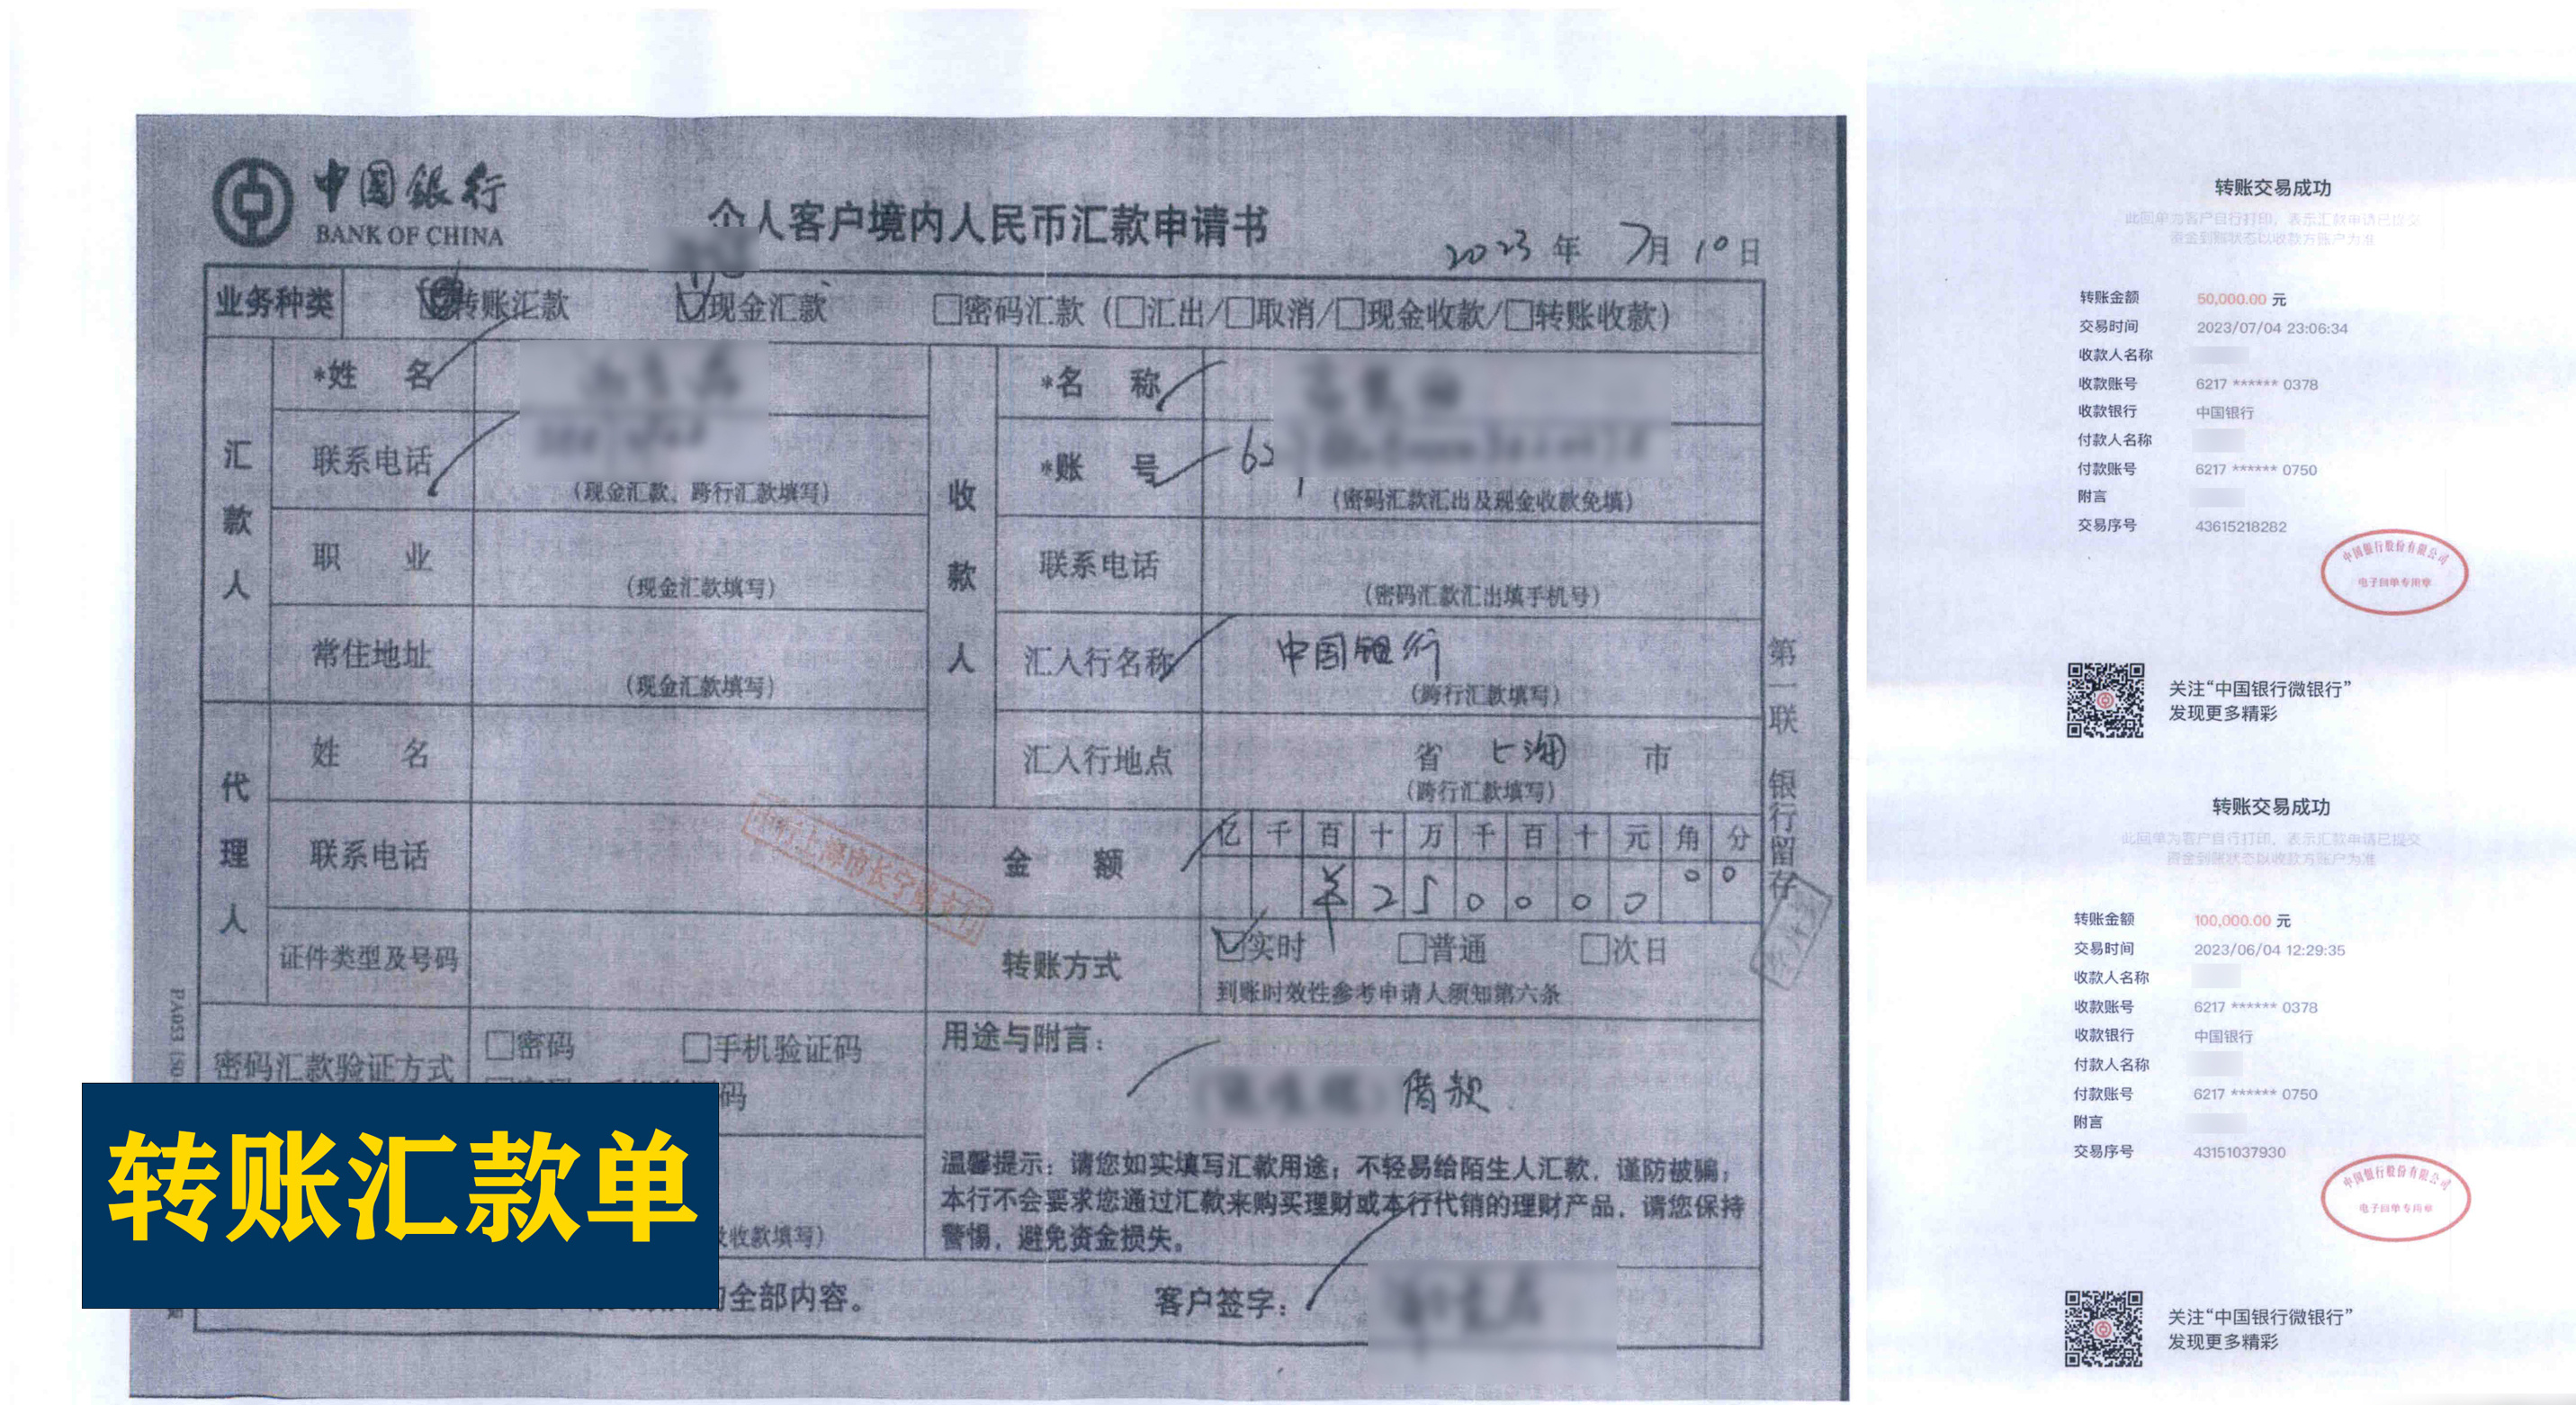 中国银行
BANK OF CHINA
个人客户境内人民币汇款申请书
2023 年 7月 10日
业务种类 转账汇款 现金汇款 密码汇款（汇出/取消/现金收款/转账收款）
汇款人
*姓 名
联系电话
（现金汇款、跨行汇款填写）
职 业
（现金汇款填写）
常住地址
（现金汇款填写）
收款人
*名 称
*账 号 62
（密码汇款汇出及现金收款免填）
联系电话
（密码汇款汇出填手机号）
汇入行名称 中国银行
（跨行汇款填写）
汇入行地点 省 上海 市
（跨行汇款填写）
代理人
姓 名
联系电话
证件类型及号码
中行上海市长宁支行
金 额
亿 千 百 十 万 千 百 十 元 角 分
¥ 2 5 0 0 0 0 0 0
转账方式 实时 普通 次日
到账时效性参考申请人须知第六条
密码汇款验证方式 密码 手机验证码
码
收款填写）
用途与附言：
借款
温馨提示：请您如实填写汇款用途；不轻易给陌生人汇款，谨防被骗；
本行不会要求您通过汇款来购买理财或本行代销的理财产品，请您保持
警惕，避免资金损失。
全部内容。
客户签字：
第一联 银行留存
转账汇款单
转账交易成功
此回单为客户自行打印，表示汇款申请已提交
资金到账状态以收款方账户为准
转账金额 50,000.00 元
交易时间 2023/07/04 23:06:34
收款人名称
收款账号 6217 ****** 0378
收款银行 中国银行
付款人名称
付款账号 6217 ****** 0750
附言
交易序号 43615218282
中国银行股份有限公司
电子回单专用章
关注“中国银行微银行”
发现更多精彩
转账交易成功
此回单为客户自行打印，表示汇款申请已提交
资金到账状态以收款方账户为准
转账金额 100,000.00 元
交易时间 2023/06/04 12:29:35
收款人名称
收款账号 6217 ****** 0378
收款银行 中国银行
付款人名称
付款账号 6217 ****** 0750
附言
交易序号 43151037930
中国银行股份有限公司
电子回单专用章
关注“中国银行微银行”
发现更多精彩